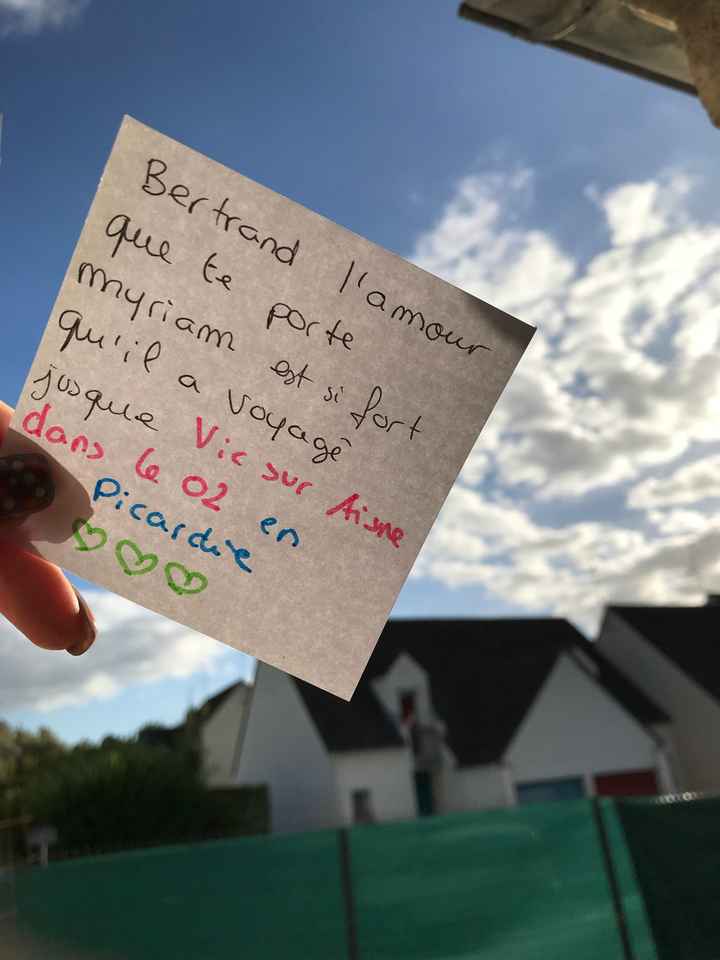 Bertrand l'amour
que te porte
myriam est si fort
qu'il a voyagé
jusque Vic sur Aisne
dans le 02 en
Picardie